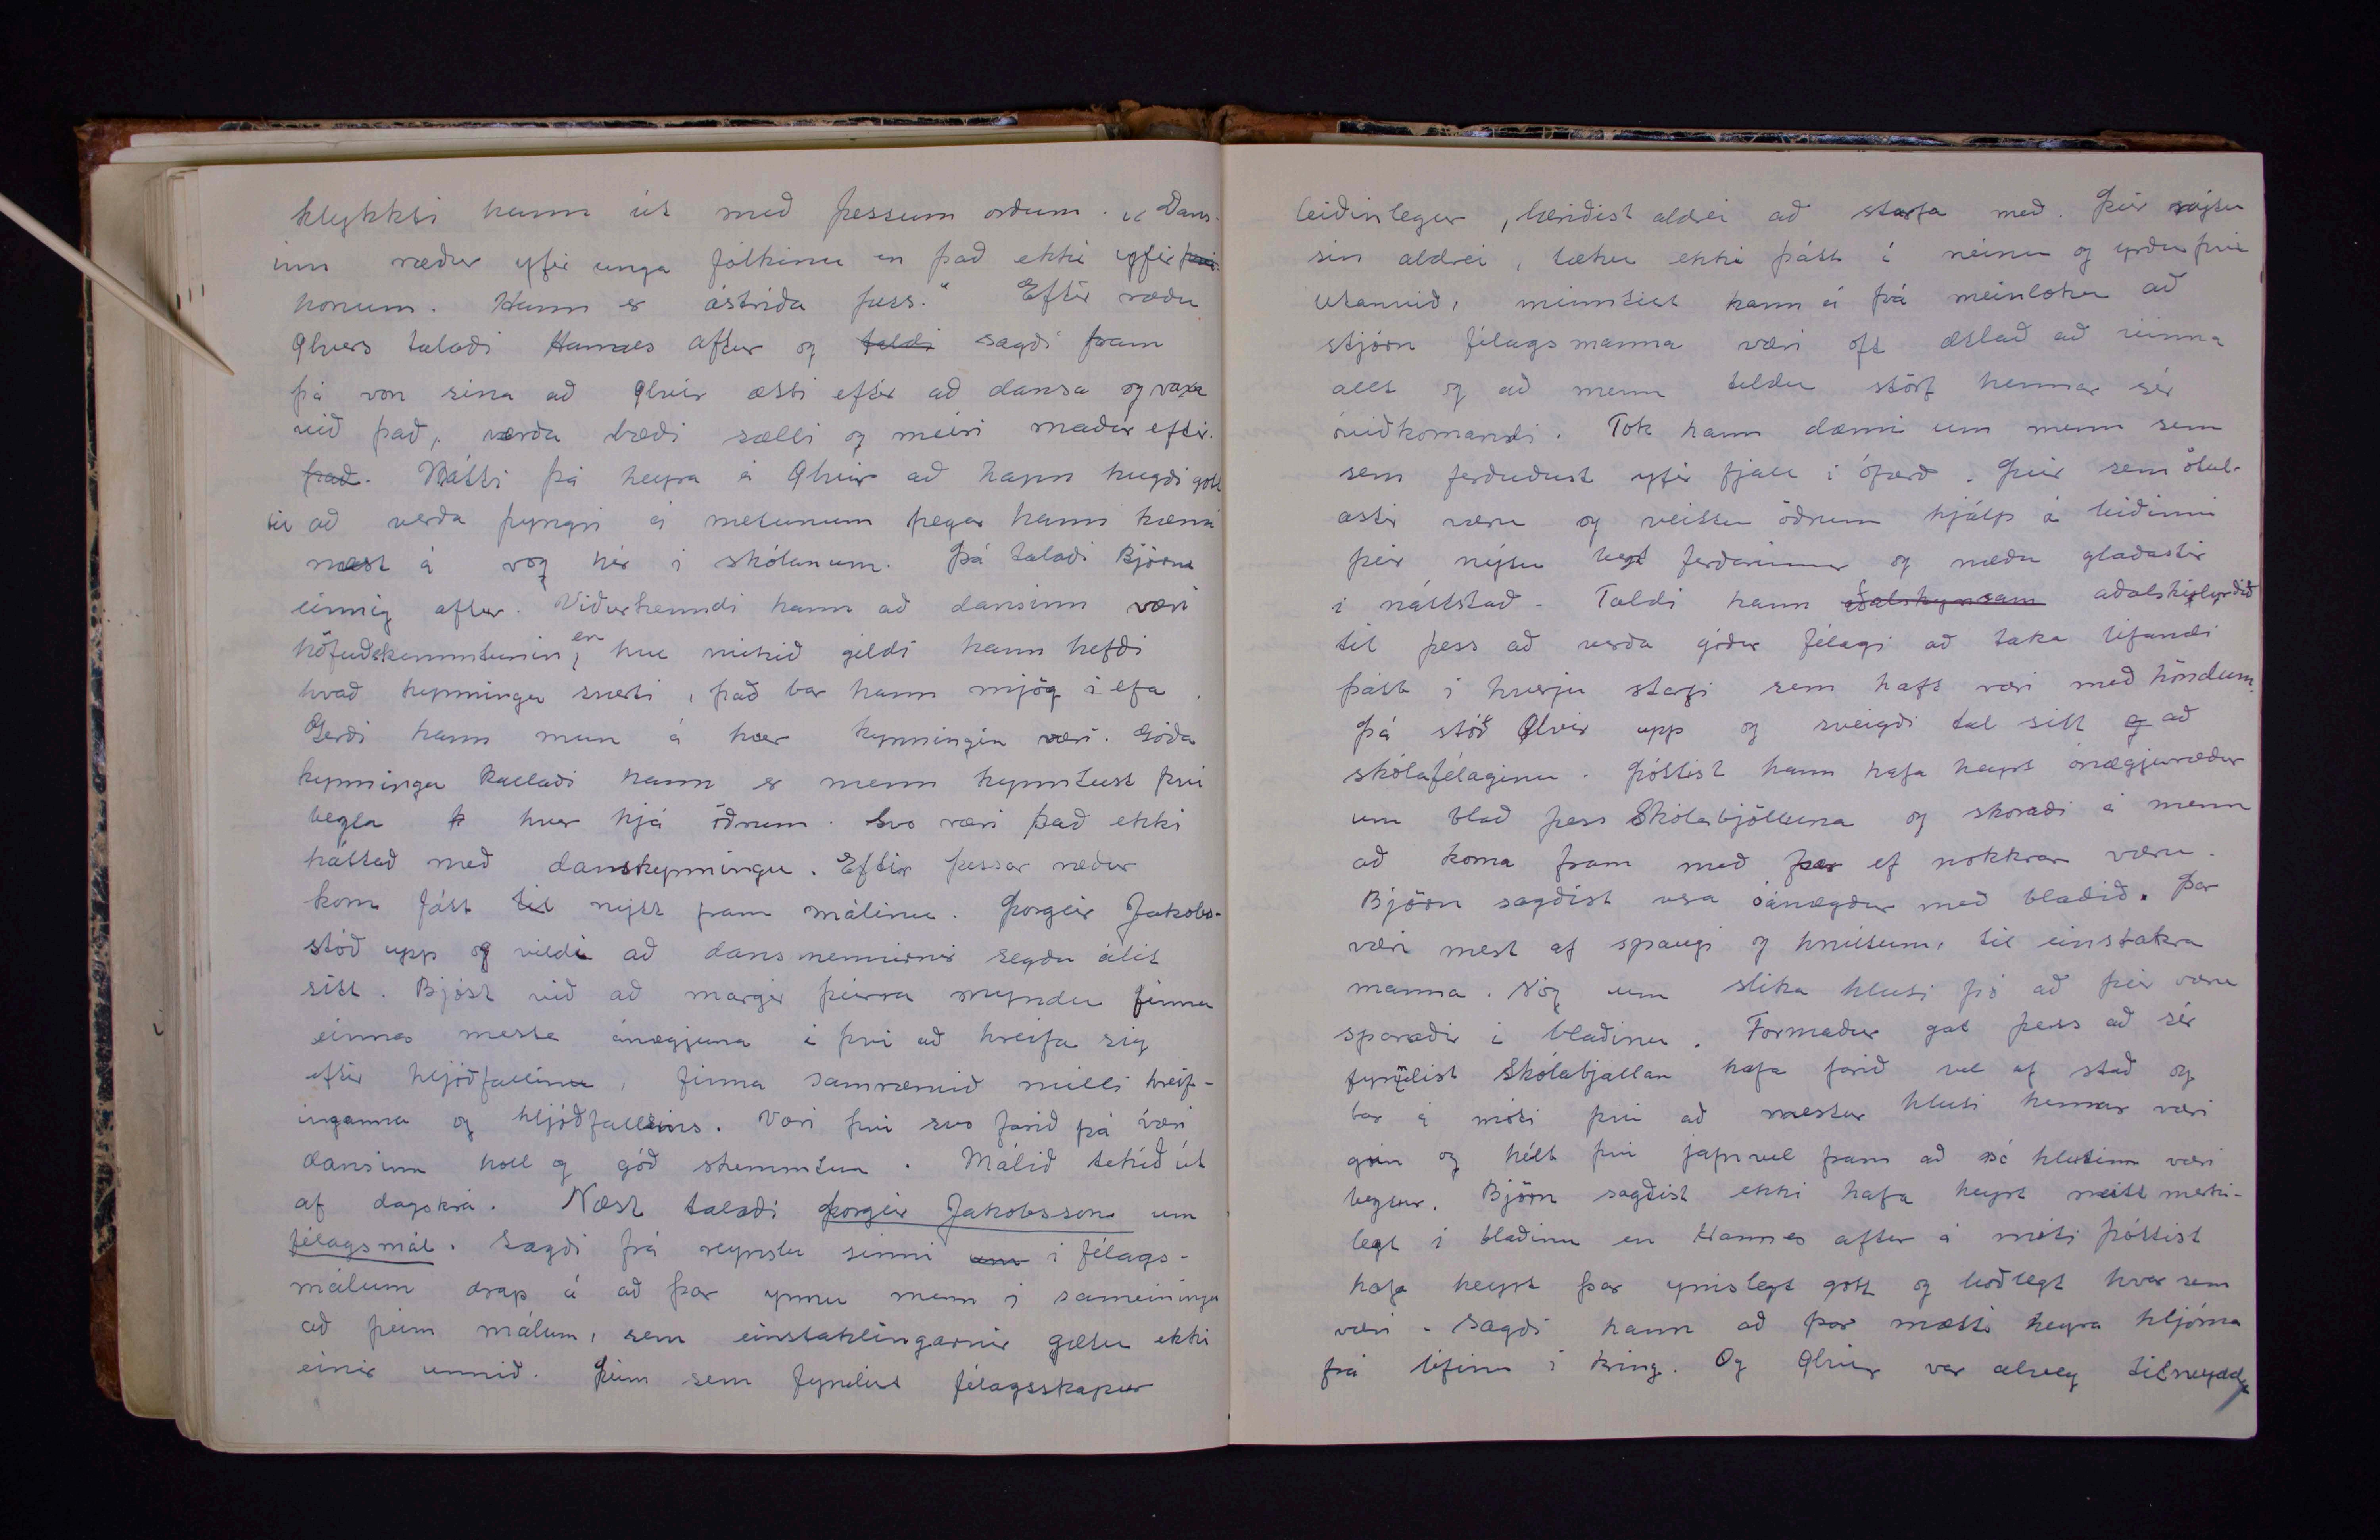 klykkti hann út með þessum orðum. „Dans-
inn ræður yfir unga fólkinu en það ekki yfir því
honum. Hann er ástríða þess." Eftir ræðu
Ölvers talaði Hannes aftur og taldi sagði fram
þá von sína að Ölvir ætti eftir að dansa og vaxa
við það, verða bæði sælli og meiri maður eftir.
það. Mátti þá heyra á Ölvir að hann hugði gott
til að verða þyngri á metunum þegar hann kæmi
næst á vog hér í skólanum. Þá talaði Björn
einnig aftur. Viðurkenndi hann að dansinn væri
höfuðskemmtunin, en hve mikið gildi hann hefði
hvað kynninga snerti, það bar hann mjög í efa.
Gerði hann mun á hver kynningin væri. Góða
kynningu kallaði hann er menn kynntust því
bezta hver hjá öðrum. Svo væri það ekki
háttað með danskynningu. Eftir þessar ræður
kom fátt til nýtt fram málinu. Þorgeir Jakobs-
stóð upp og vildi að dansmennirnir segðu álit
sitt. Bjóst við að margir þeirra myndu finna
einna mesta ánægjuna í því að hreifa sig
eftir hljóðfallinu, finna samræmið milli hreif-
inganna og hljóðfallsins. Væri því svo farið þá væri
dansinn holl og góð skemmtun. Málið tekið út
af dagskrá. Næst talaði Þorgeir Jakobsson um
félagsmál. Sagði frá reynslu sinni um í félags-
málum drap á að þar ynnu menn í sameiningu
að þeim málum, sem einstaklingarnir gætu ekki
einir unnið. Þeim sem fyndist félagsskapur
leiðinlegur, lærðist aldrei að starfa með. Þeir nytu
sín aldrei, tæku ekki þátt í neinu og yrðu því
utanvið, minntist hann á þá meinloku að
stjórn félagsmanna væri oft ætlað að vinna
allt og að menn teldu störf hennar sér
óviðkomandi. Tók hann dæmi um menn sem
sem ferðuðust yfir fjall í ófærð. Þeir sem ötul-
astir væru og veittu öðrum hjálp á leiðinni
þeir nytu bezt ferðarinnar og næðu glaðastir
í náttstað. Taldi hann aðalskynsam aðalskilyrðið
til þess að verða góður félagi að taka lifandi
þátt í hverju starfi sem haft væri með höndum.
Þá stóð Ölvir upp og sveigði tal sitt og að
skólafélaginu. Þóttist hann hafa heyrt óánægjuraddir
um blað þess Skólabjölluna og skoraði á menn
að koma fram með þær ef nokkrar væru.
Björn sagðist vera óánægður með blaðið. Þar
væri mest af spaugi og hnútum, til einstakra
manna. Nóg um slíka hluti þó að þeir væru
sparaðir í blaðinu. Formaður gat þess að sér
fyndist Skólabjallan hafa farið vel af stað og
bar á móti því að mestur hluti hennar væri
grín og hélt því jafnvel fram að sá hlutinn væri
beztur. Björn sagðist ekki hafa heyrt neitt merki-
legt í blaðinu en Hannes aftur á móti þóttist
hafa heyrt þar ýmislegt gott og boðlegt hver sem
væri. Sagði hann að þar mætti heyra hljóma
frá lífinu í kring. Og Ölvir var alveg tilneyddur